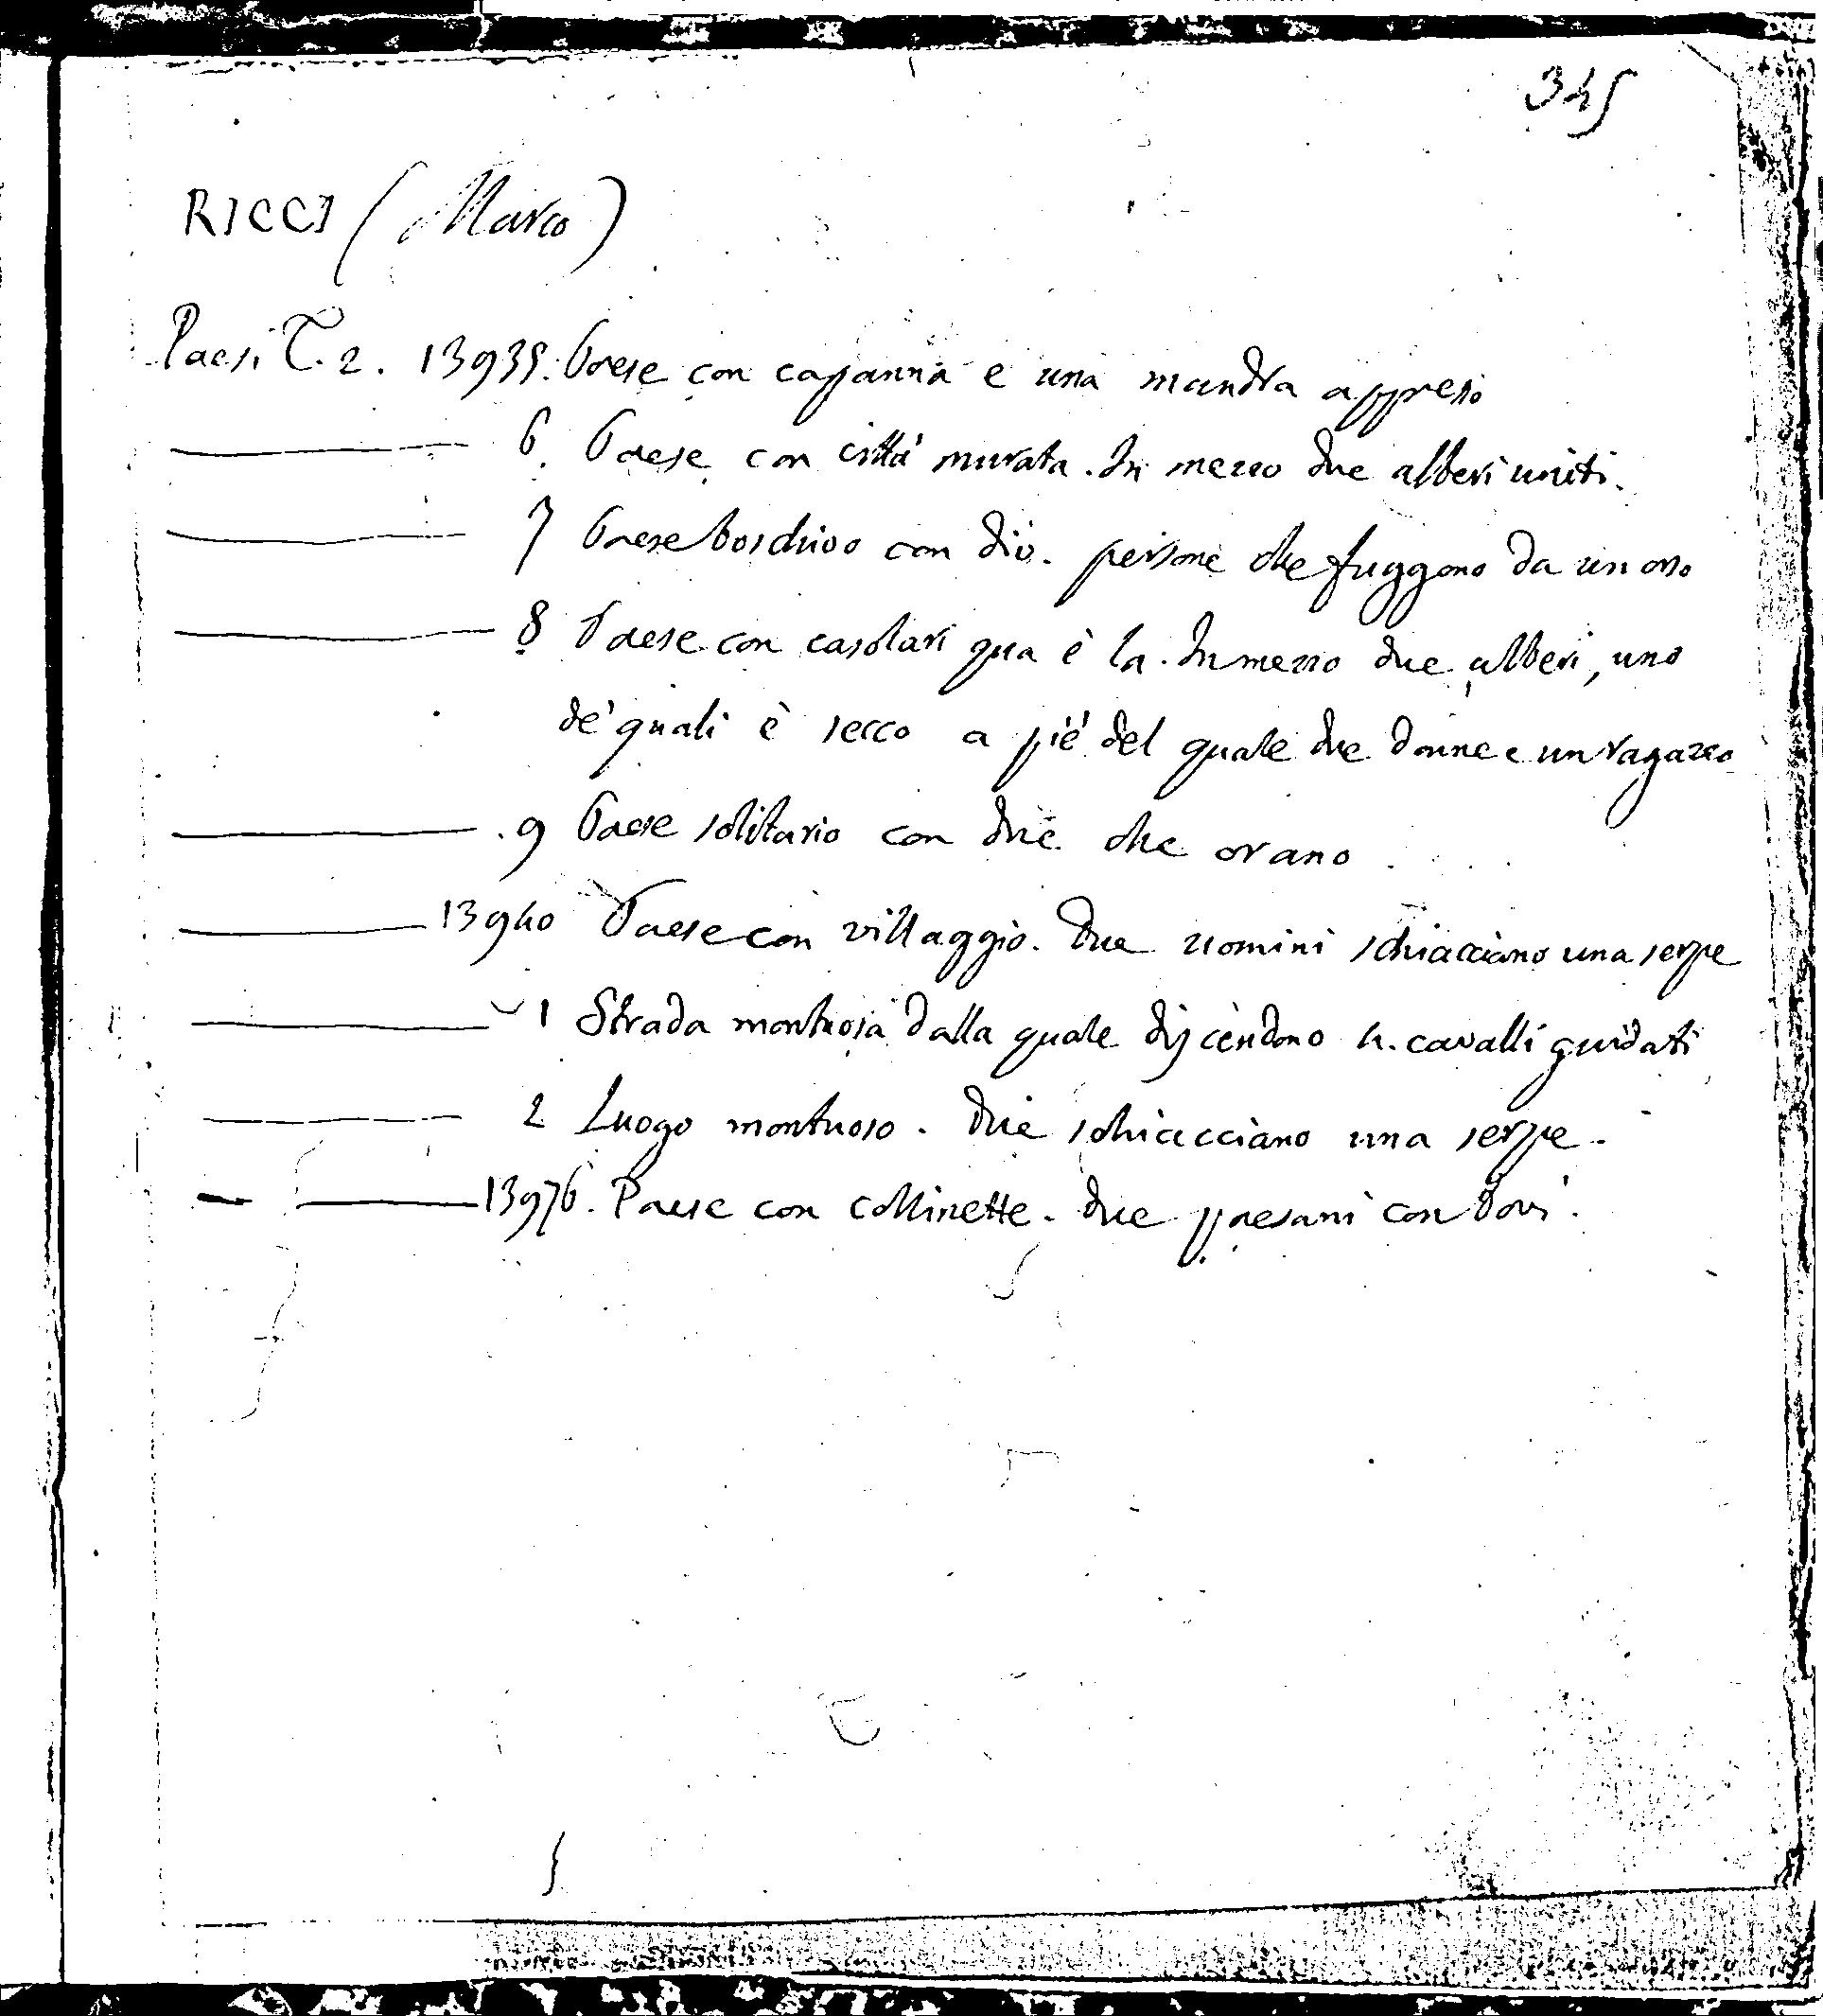 345
RICCI (Marco)
Paesi T. 2. 13935. Paese con capanna e una mandra appresso
6. Paese con città murata. In mezzo due alberi uniti.
7 Paese boschivo con div. persone che fuggono da un orso
8 Paese con casolari qua e la. In mezzo due alberi, uno
de' quali è secco a piè del quale due donne e un ragazzo
9 Paese solitario con due che orano
13940 Paese con villaggio. Due uomini schiacciano una serpe
1 Strada montuosa dalla quale discendono 4. cavalli guidati
2 Luogo montuoso. Due schiacciano una serpe.
13976. Paese con collinette. Due paesani con bovi.